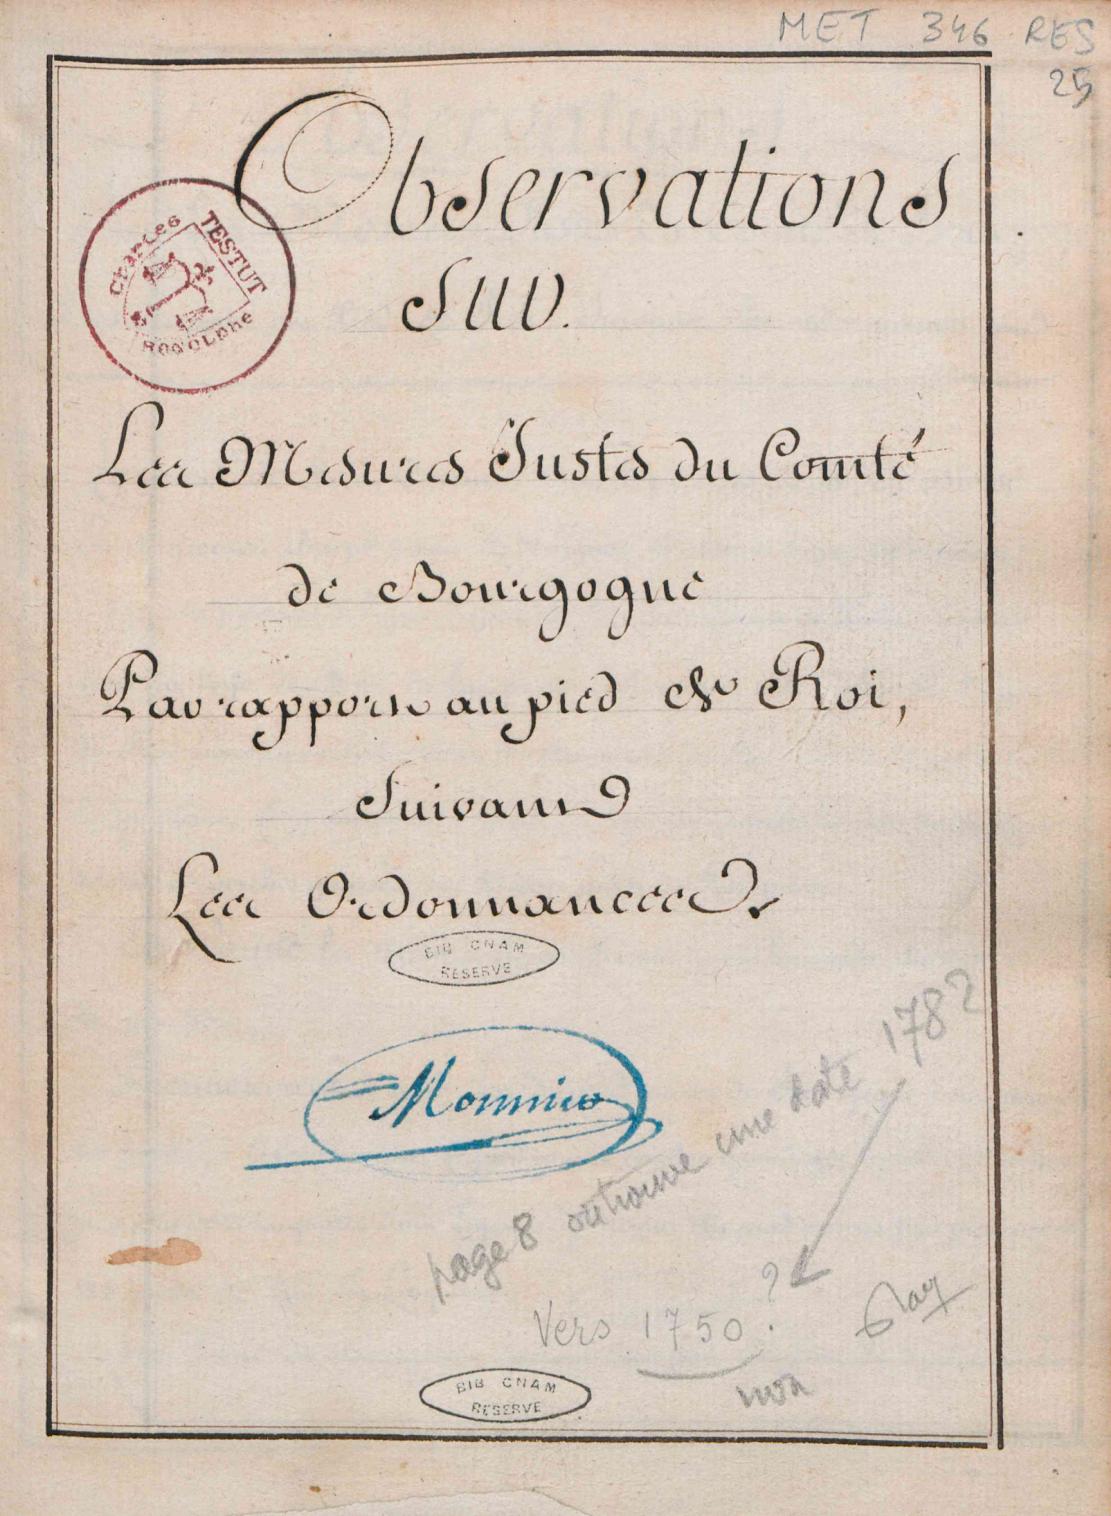 MET 346 RES
25
Observations
sur.
Charles TESTUT
Rodolphe
Les Mesures Justes du Comté
de Bourgogne
Par rapport au pied du Roi,
Suivant
Les Ordonnances.
BIB CNAM
RESERVE
Monnier
page 8 on trouve une date 1782
Vers 1750 ?
non
BIB CNAM
RESERVE